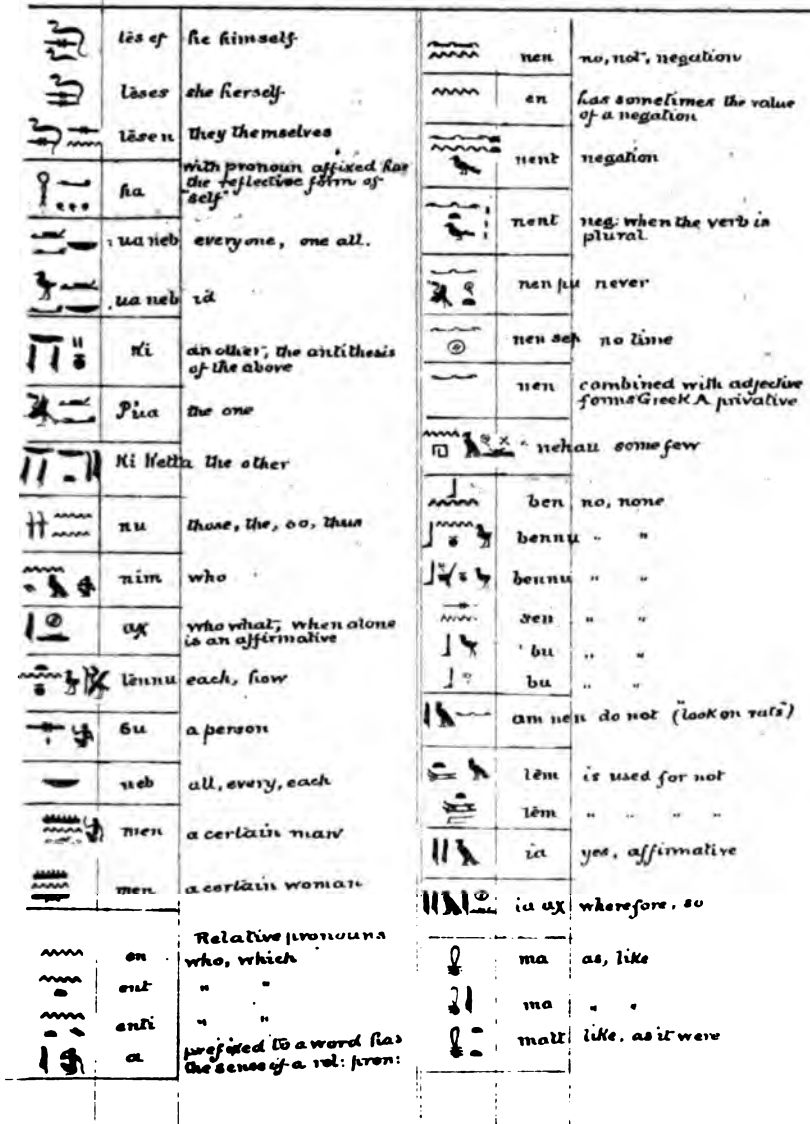 tēs ef he himself
tēses she herself
tēsen they themselves
ha with pronoun affixed has
the reflective form of
"self"
ua neb everyone, one all.
ua neb id
Ki another, the antithesis
of the above
Pua the one
Ki Ketta the other
nu those, the, so, thus
nim who
aχ who what, when alone
is an affirmative
tennu each, how
su a person
neb all, every, each
men a certain man
men a certain woman
Relative pronouns
en who, which
ent " "
enti " "
a prefixed to a word has
the sense of a rel: pron:
nen no, not, negation
en has sometimes the value
of a negation
nent negation
nent neg: when the verb is
plural
nen pu never
nen sep no time
nen combined with adjective
forms Greek A privative
nehau some few
ben no, none
bennu " "
bennu " "
sen " "
bu " "
bu " "
am nen do not ("look on rats")
tēm is used for not
tēm " " " "
ia yes, affirmative
ia aχ wherefore, so
ma as, like
ma " "
matt like, as it were